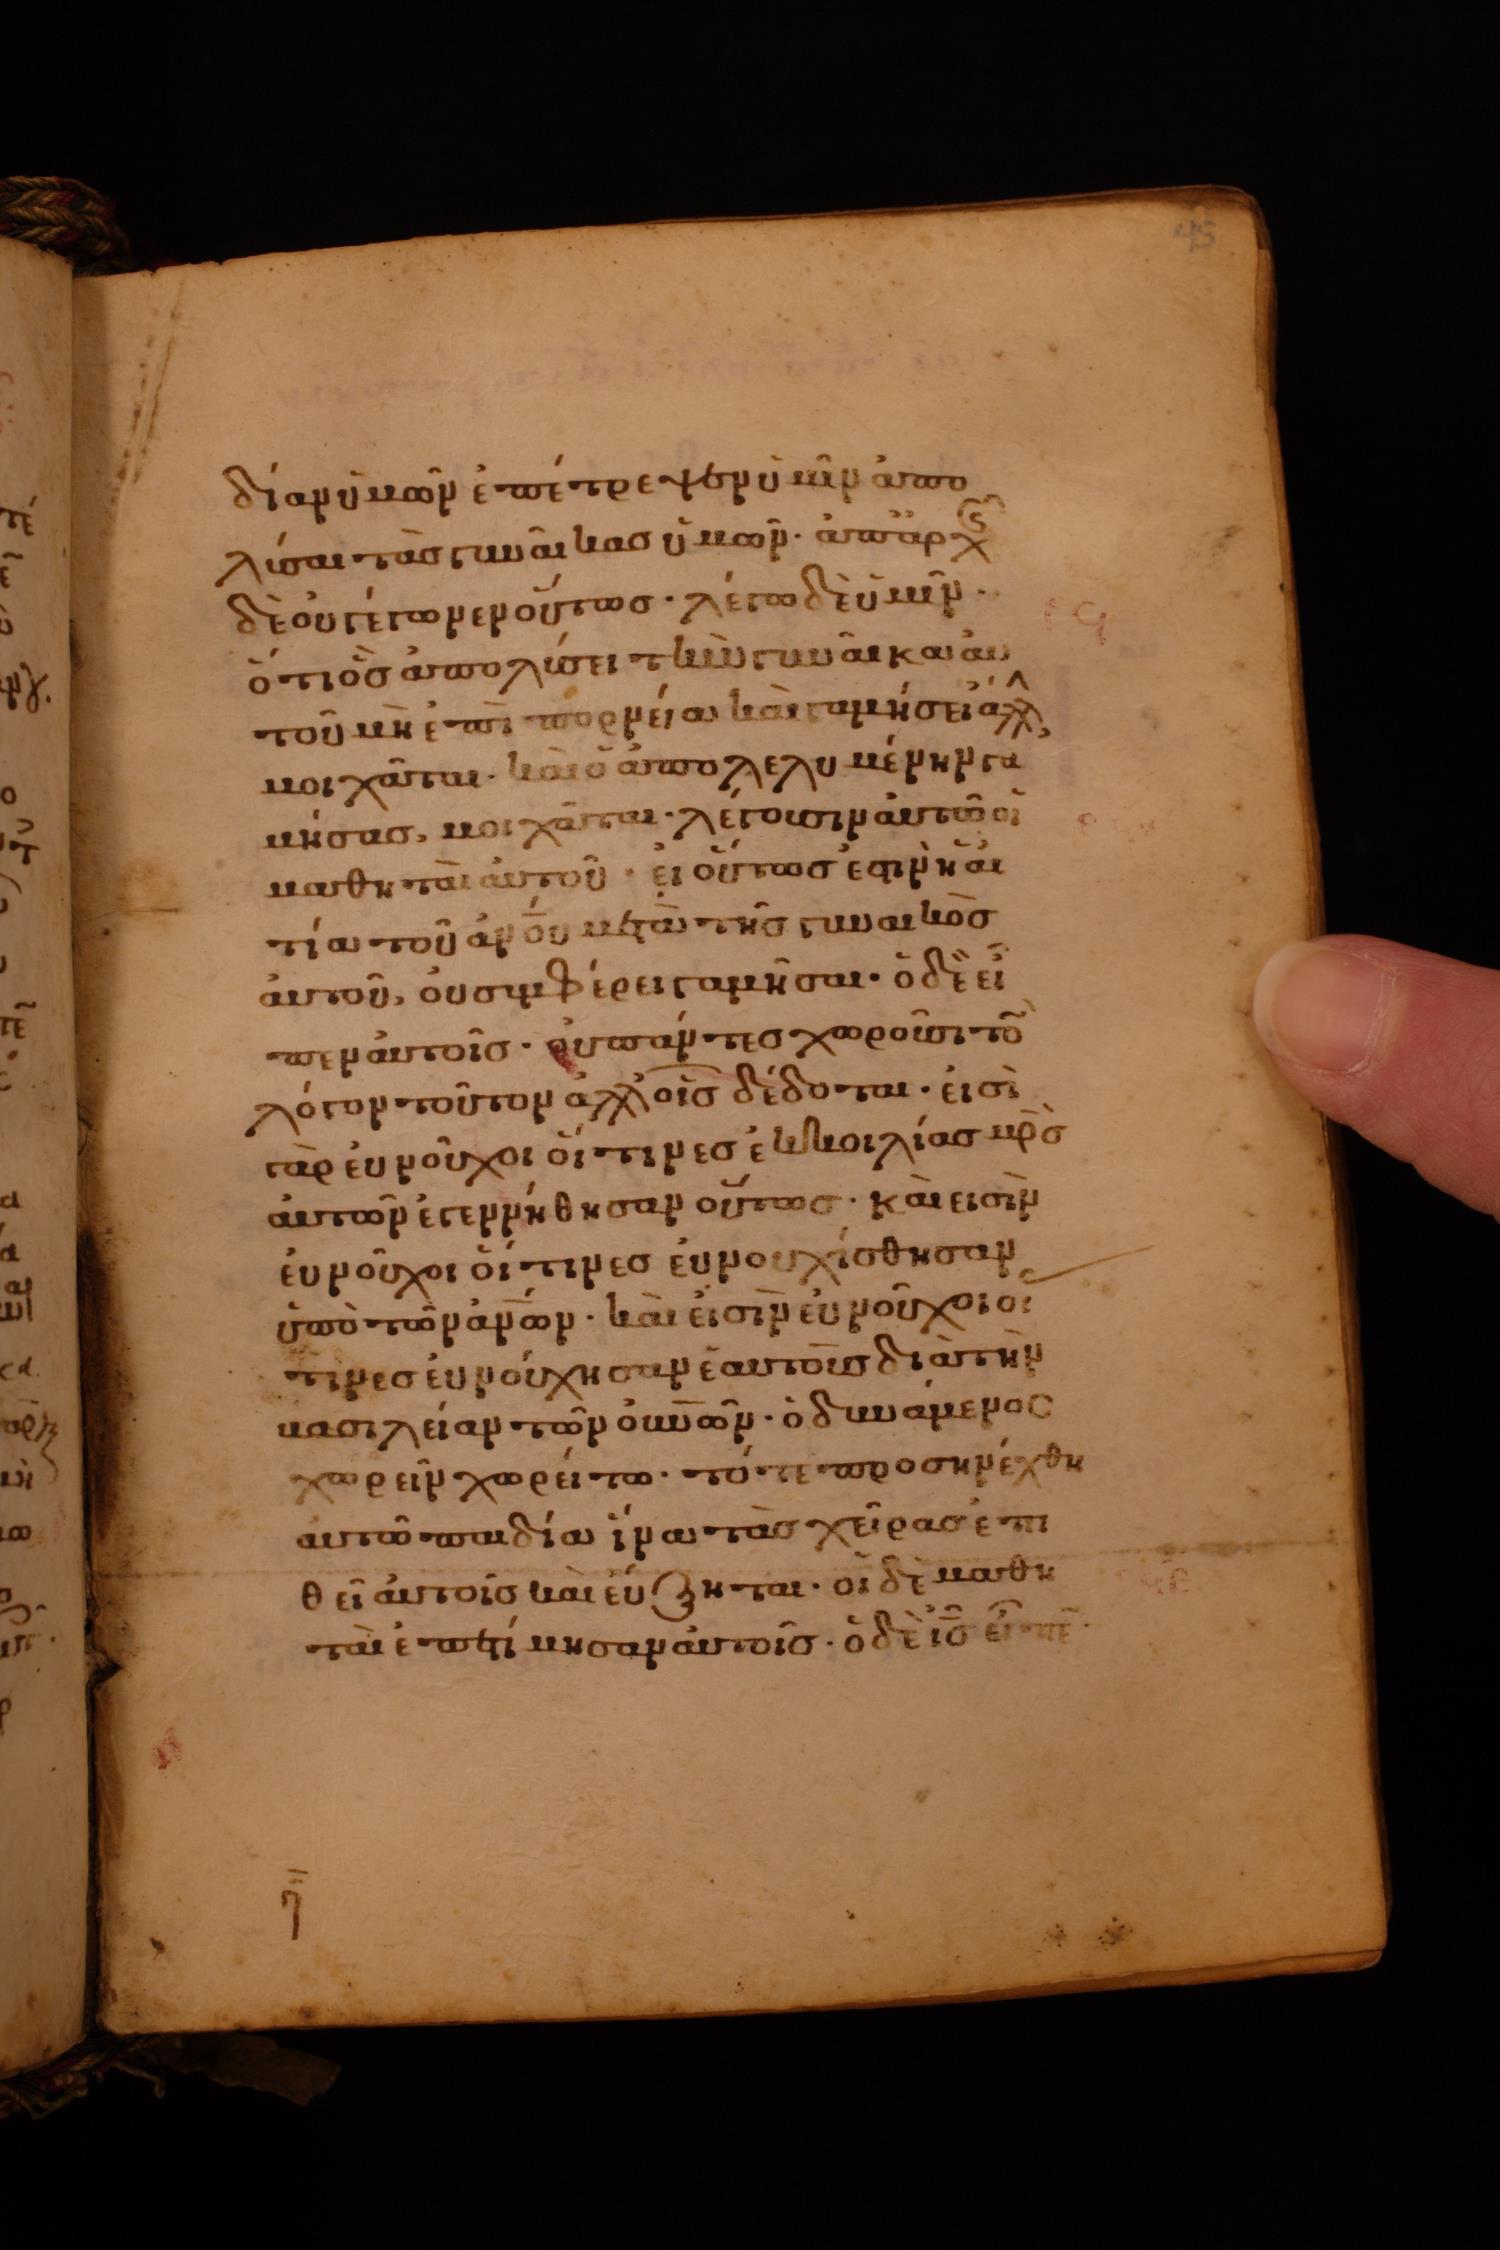 45
δίαν ὑμῶν ἐπέτρεψεν ὑμῖν ἀπο
λύσαι τὰς γυναῖκας ὑμῶν· ἀπ ἀρχῆς
δὲ οὐ γέγωνεν οὕτως· λέγω δὲ ὑμῖν·
ὅτι ὃς ἀπολύσει τὴν γυναῖκα αὐ
τοῦ μὴ ἐπὶ πορνεία καὶ γαμήσει ἄλλ
μοιχᾶται· καὶ ὁ ἀπολελυμένην γα
μήσας, μοιχᾶται· λέγουσιν αὐτῶ οἱ
μαθηταὶ αὐτοῦ· εἰ οὕτως ἐστὶν ἡ αἰ
τία τοῦ ἀνου μετὰ τῆς γυναικὸς
αὐτοῦ, οὐ συμφέρει γαμῆσαι· ὁ δὲ εἶ
πεν αὐτοῖς· οὐ πάντες χωροῦσι τὸν
λόγον τοῦτον ἀλλ οἷς δέδοται· εἰσὶ
γὰρ εὐνοῦχοι οἵτινες ἐκ κοιλίας μρς
αὐτῶν ἐγεννήθησαν οὕτως· καὶ εἰσὶν
εὐνοῦχοι οἵτινες εὐνουχίσθησαν
ὑπὸ τῶν ἀνων· καὶ εἰσὶν εὐνοῦχοι οἵ
τινες εὐνούχησαν ἑαυτοῦς διὰ τὴν
βασιλείαν τῶν οὐνων· ὁ δυνάμενος
χωρεῖν χωρείτω· τότε προσηνέχθη
αὐτῶ παιδία ἵνα τὰς χεῖρας ἐπι
θεῖ αὐτοῖς καὶ εὔξηται· οἱ δὲ μαθη
ταὶ ἐπετίμησαν αὐτοῖς· ὁ δὲ ις εἶπεν·